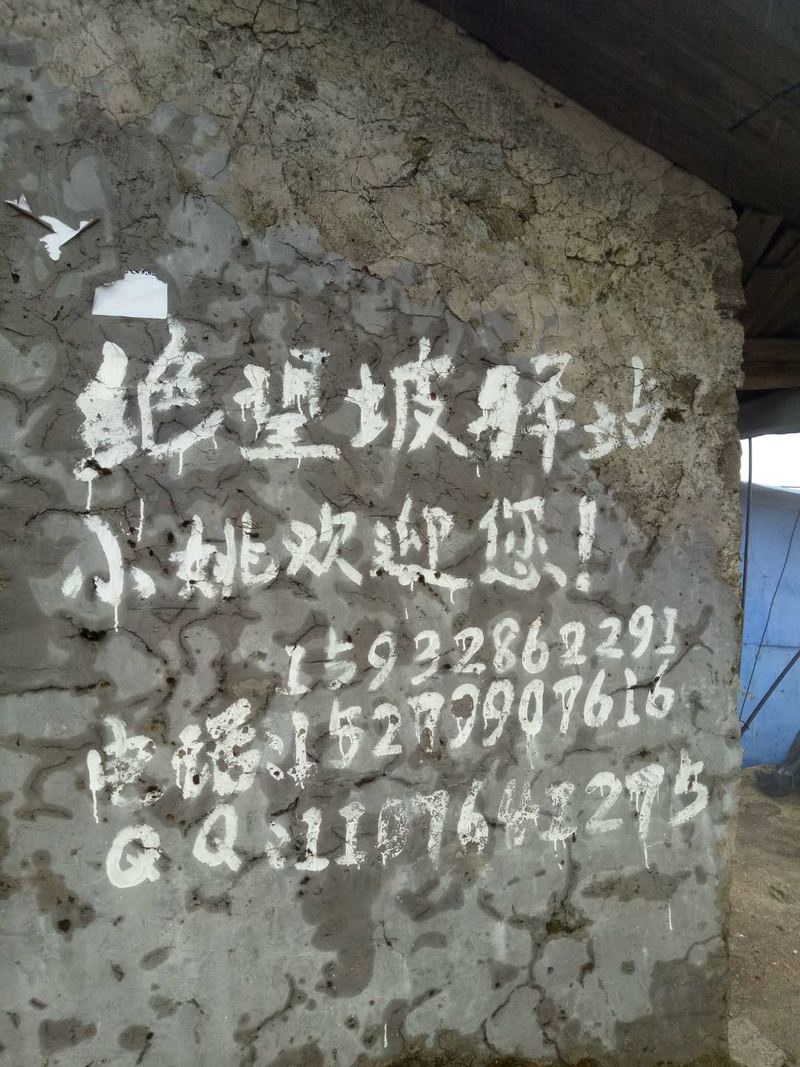 绝望坡驿站
小姚欢迎您!
15932862291
电话:15279907616
QQ:1107641275